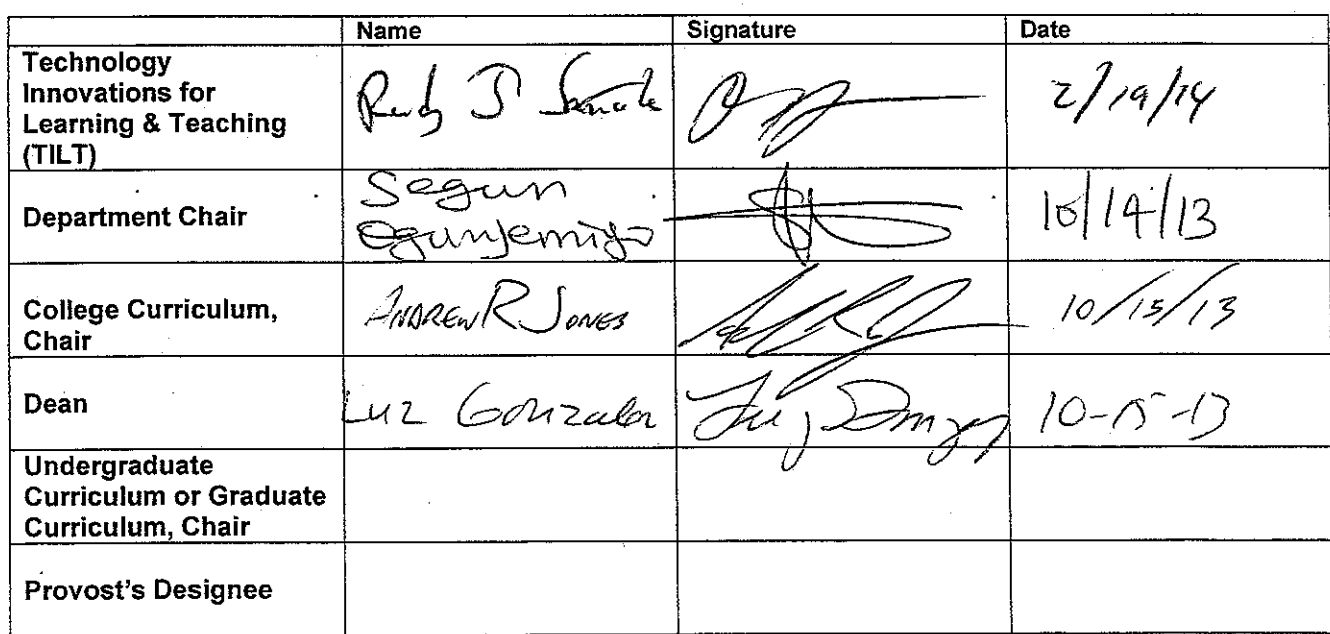 Name Signature Date
Technology
Innovations for
Learning & Teaching
(TILT)
Rudy J 2/19/14
Department Chair
Segun
Ogunjemiyo
10/14/13
College Curriculum,
Chair
ANDREW R JONES 10/15/13
Dean
Luz Gonzalez 10-15-13
Undergraduate
Curriculum or Graduate
Curriculum, Chair
Provost's Designee